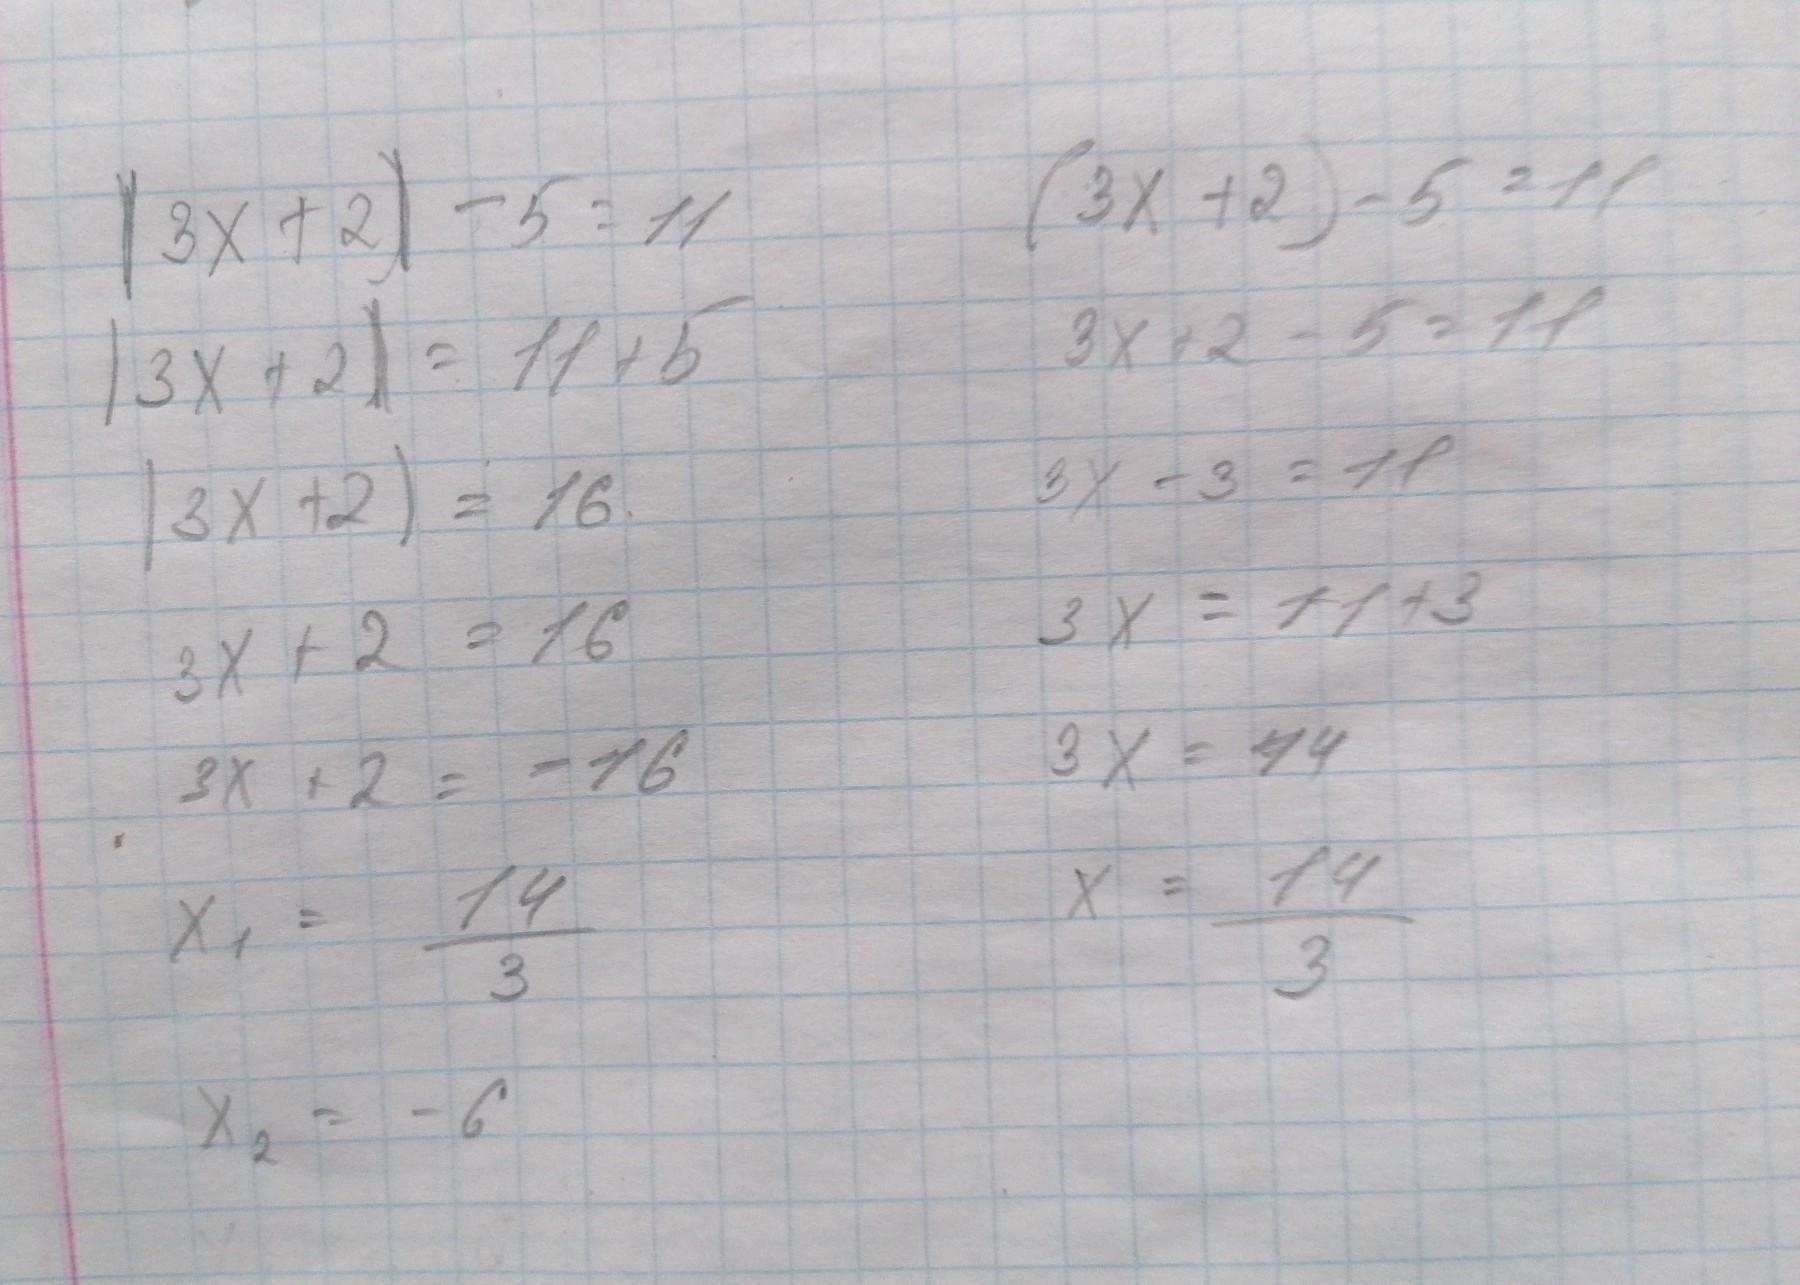 |3x+2| -5=11
|3x+2| = 11+5
|3x+2) = 16.
3x+2 = 16
3x+2 = -16
x₁ = 14/3
x₂ = -6
(3x+2)-5=11
3x+2-5=11
3x-3=11
3x = 11+3
3x = 14
x = 14/3